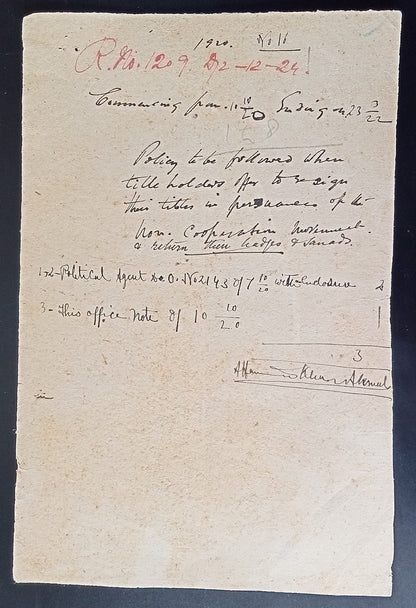 1920. No 11
R. No. 1209. D/2-12-24.
Commencing from 10 10/20 Ending on 23 3/22
Policy to be followed when
title holders offer to resign
their titles in persuance of the
Non. Cooperation movement.
& return their badges & Sanads.
1-2-Political Agent D.O. No 2143 of 7 10/20 with Enclosure 2
3- This office Note of 10 10/20 1
3